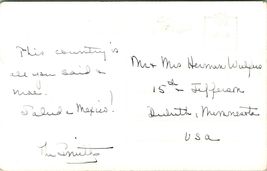 This country is
all you said &
more.
Salud & Mexico!
Mr & Mrs Herman
15th & Jefferson
Duluth, Minnesota
USA